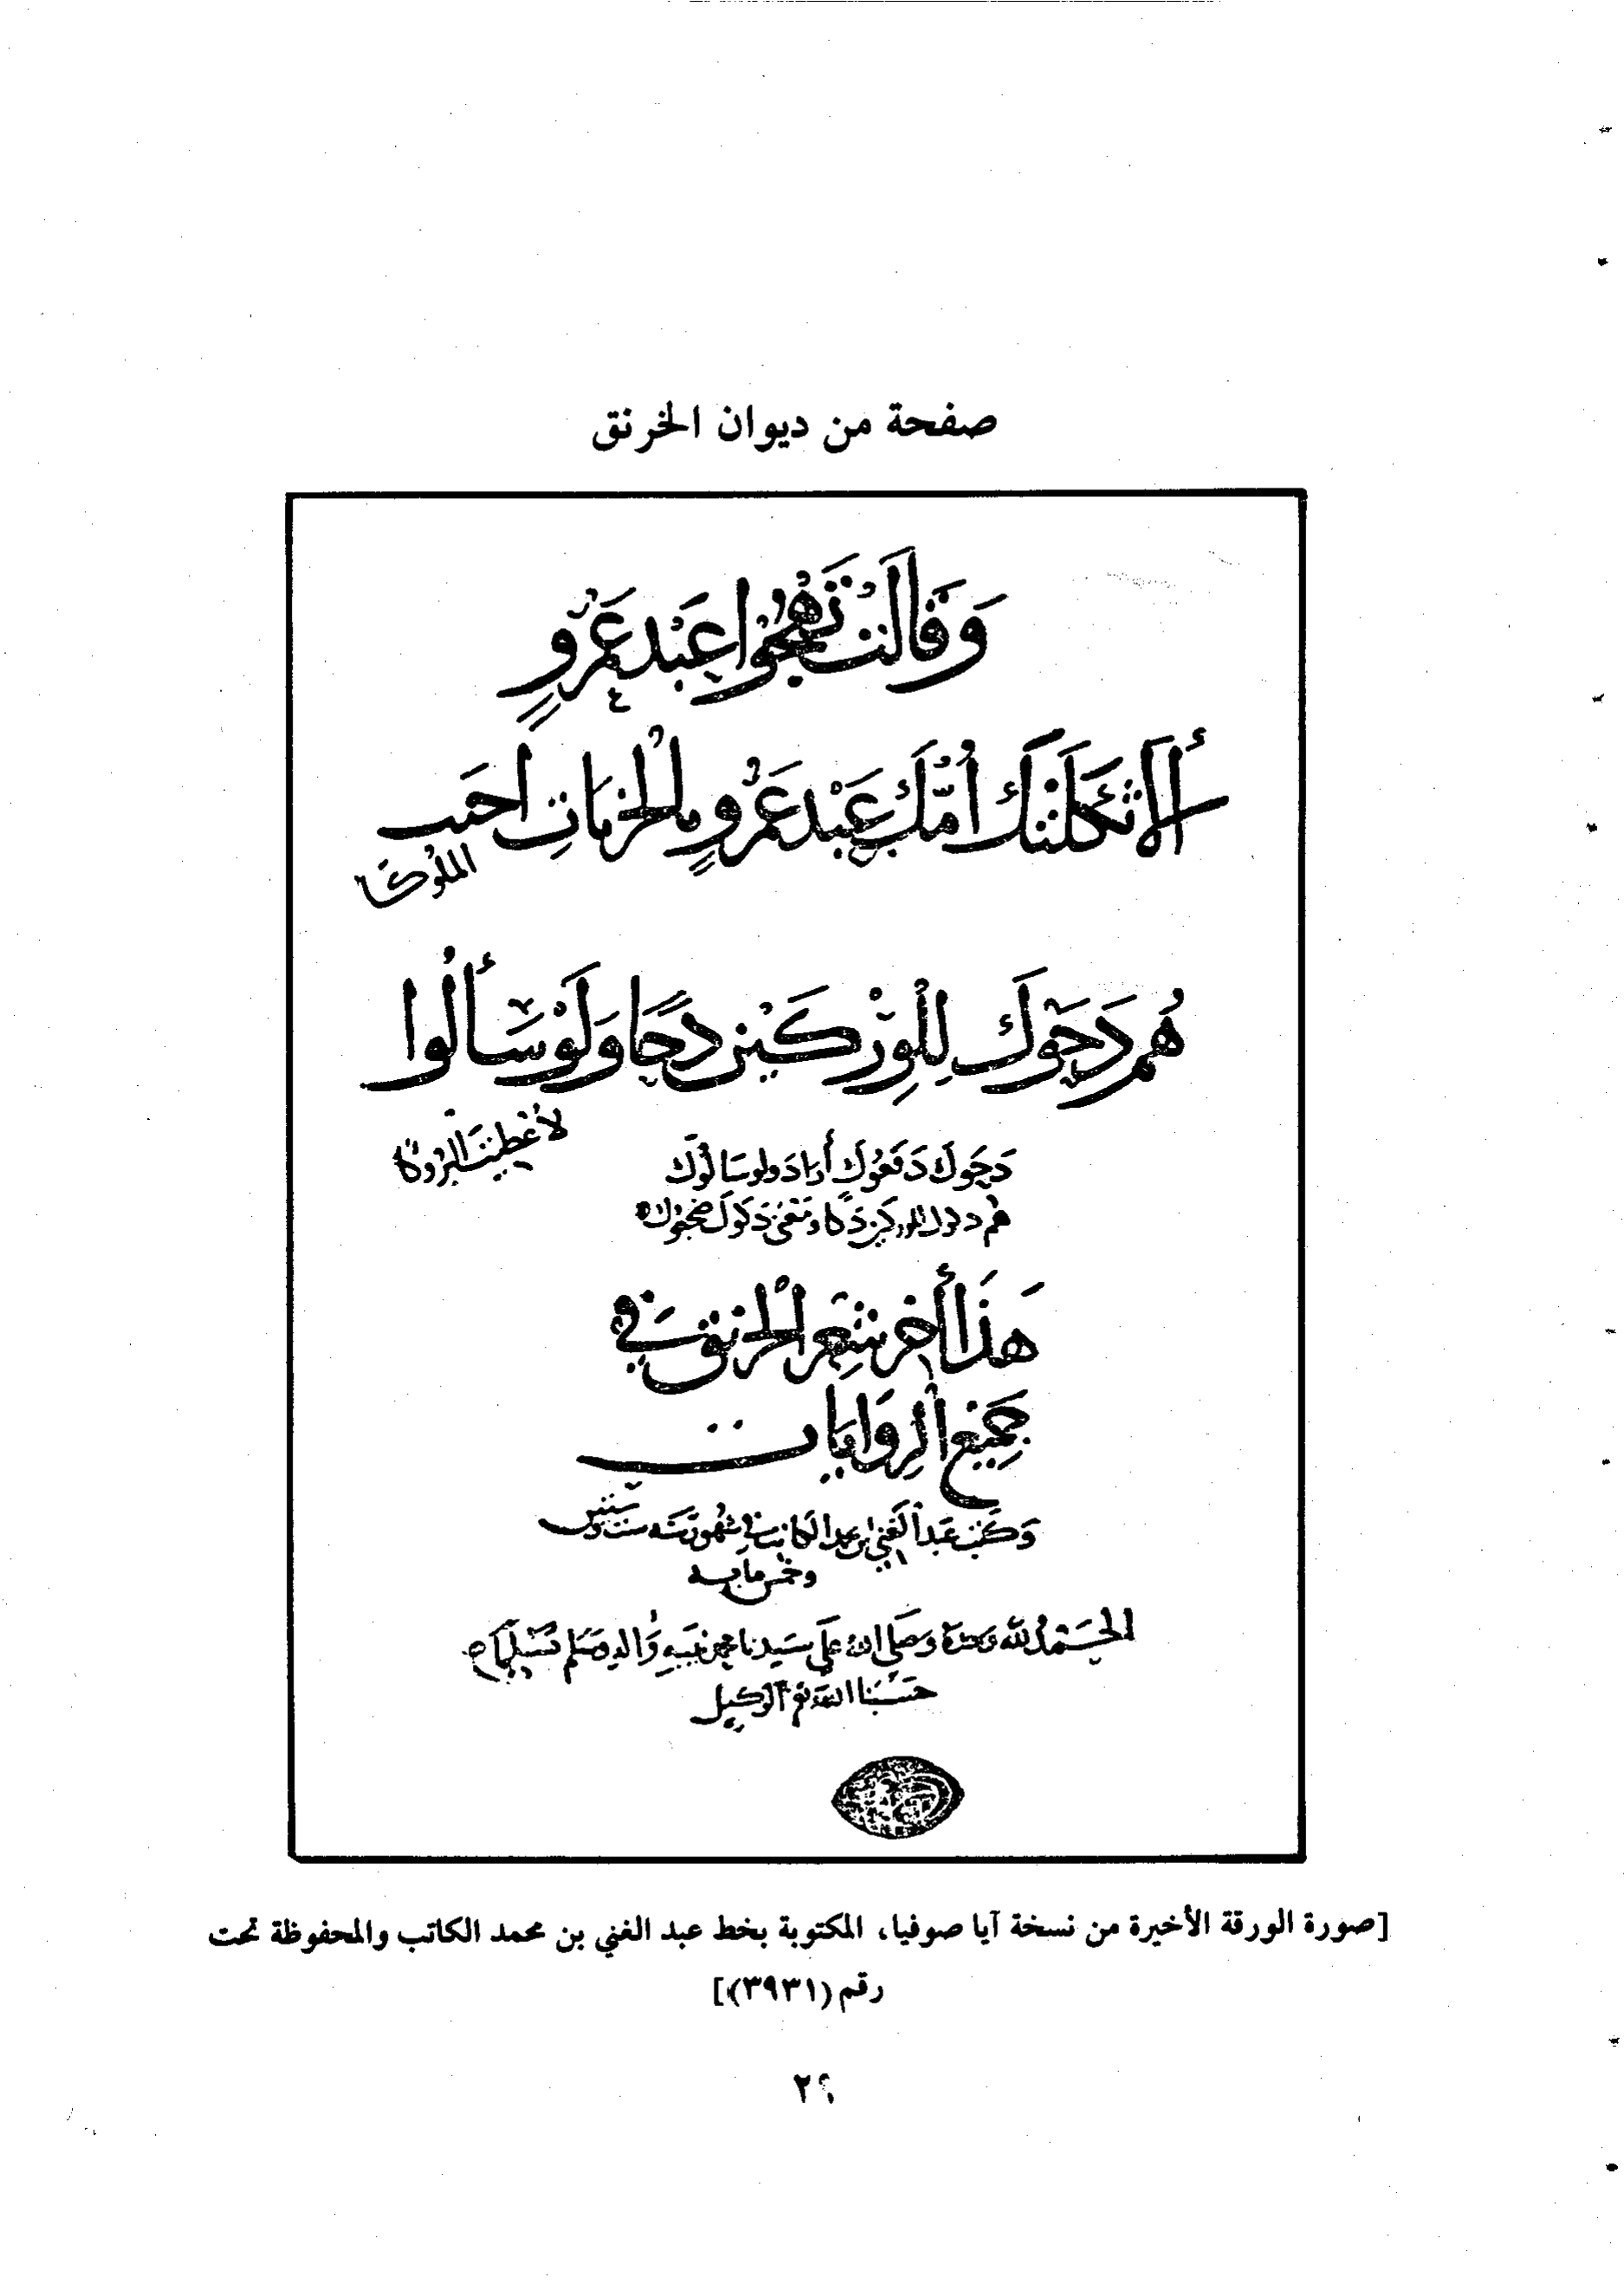 صفحة من ديوان الخرنق
وَقَالَتْ تَهْجُوا عَبْدَ عَمْرٍو
أَلَا ثَكَلَتْكَ أُمُّكَ عَبْدَ عَمْرٍو أبالخزيات اخَيت
الملُوكَا
هُم دَحَوكَ لِلْوِرْكَيْنِ دَحًّا وَلَوْ سَأَلُوا
لأَعْطَيتَ البُرُوكَا
دَحَوكَ دَفَعُوكَ أرادَ ولو سَالُوكَ
هَذَا أخر شِعْرِ الْخرنق فِي
جَمِيْعِ الرِوَايَات
وَكَتَبَ عَبدُ الغَنِيِ ابن محمد الكاتب في شهور سَنَة سِت وسِتين
وخمس مايه
الحَمْدُ لله وَحدَهُ وَصَلى الله عَلَى سَيدنا محمد نَبيهِ وَاله وَسَلم تَسْلِيمًا
حَسْبُنَا الله ونعم الوكيل
[صورة الورقة الأخيرة من نسخة آيا صوفيا، المكتوبة بخط عبد الغني بن محمد الكاتب والمحفوظة تحت
رقم (٣٩٣١)]